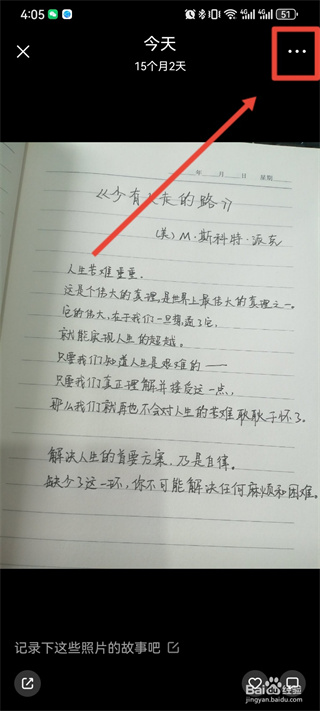 4:05
51
今天
15个月2天
年 月 日 星期
《少有人走的路》
(美) M·斯科特·派克
人生苦难重重。
这是个伟大的真理,是世界上最伟大的真理之一。
它的伟大,在于我们一旦想通了它,
就能实现人生的超越。
只要我们知道人生是艰难的——
只要我们真正理解并接受这一点,
那么我们就再也不会对人生的苦难耿耿于怀了。
解决人生的首要方案,乃是自律。
缺少了这一环,你不可能解决任何麻烦和困难。
记录下这些照片的故事吧
Baidu经验
jingyan.baidu.com